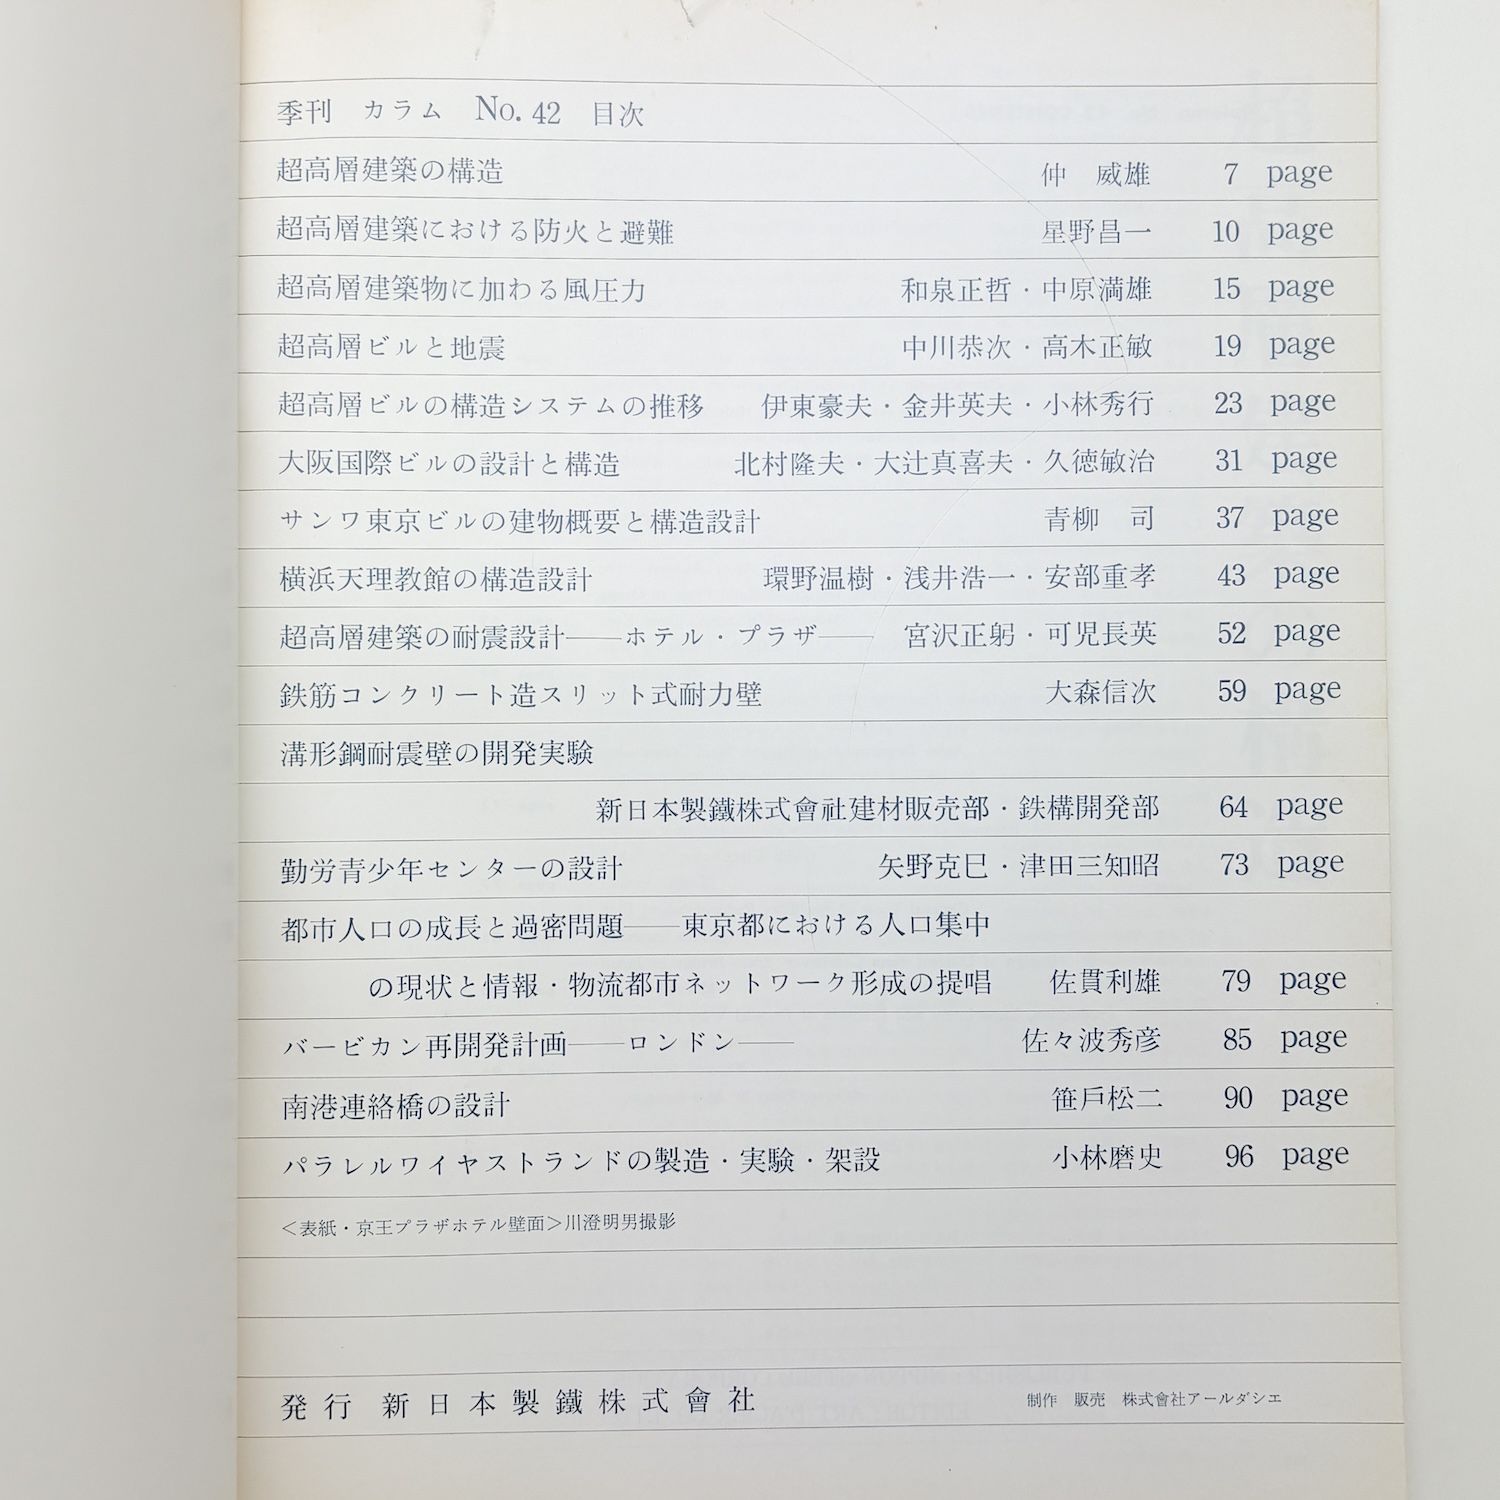 季刊　カラム　No. 42　目次
超高層建築の構造　仲　威雄　7　page
超高層建築における防火と避難　星野昌一　10　page
超高層建築物に加わる風圧力　和泉正哲・中原満雄　15　page
超高層ビルと地震　中川恭次・高木正敏　19　page
超高層ビルの構造システムの推移　伊東豪夫・金井英夫・小林秀行　23　page
大阪国際ビルの設計と構造　北村隆夫・大辻真喜夫・久徳敏治　31　page
サンワ東京ビルの建物概要と構造設計　青柳　司　37　page
横浜天理教館の構造設計　環野温樹・浅井浩一・安部重孝　43　page
超高層建築の耐震設計――ホテル・プラザ――　宮沢正躬・可児長英　52　page
鉄筋コンクリート造スリット式耐力壁　大森信次　59　page
溝形鋼耐震壁の開発実験
新日本製鐵株式會社建材販売部・鉄構開発部　64　page
勤労青少年センターの設計　矢野克巳・津田三知昭　73　page
都市人口の成長と過密問題――東京都における人口集中
の現状と情報・物流都市ネットワーク形成の提唱　佐貫利雄　79　page
バービカン再開発計画――ロンドン――　佐々波秀彦　85　page
南港連絡橋の設計　笹戸松二　90　page
パラレルワイヤストランドの製造・実験・架設　小林磨史　96　page
＜表紙・京王プラザホテル壁面＞川澄明男撮影
発行　新日本製鐵株式會社　制作　販売　株式會社アールダシエ